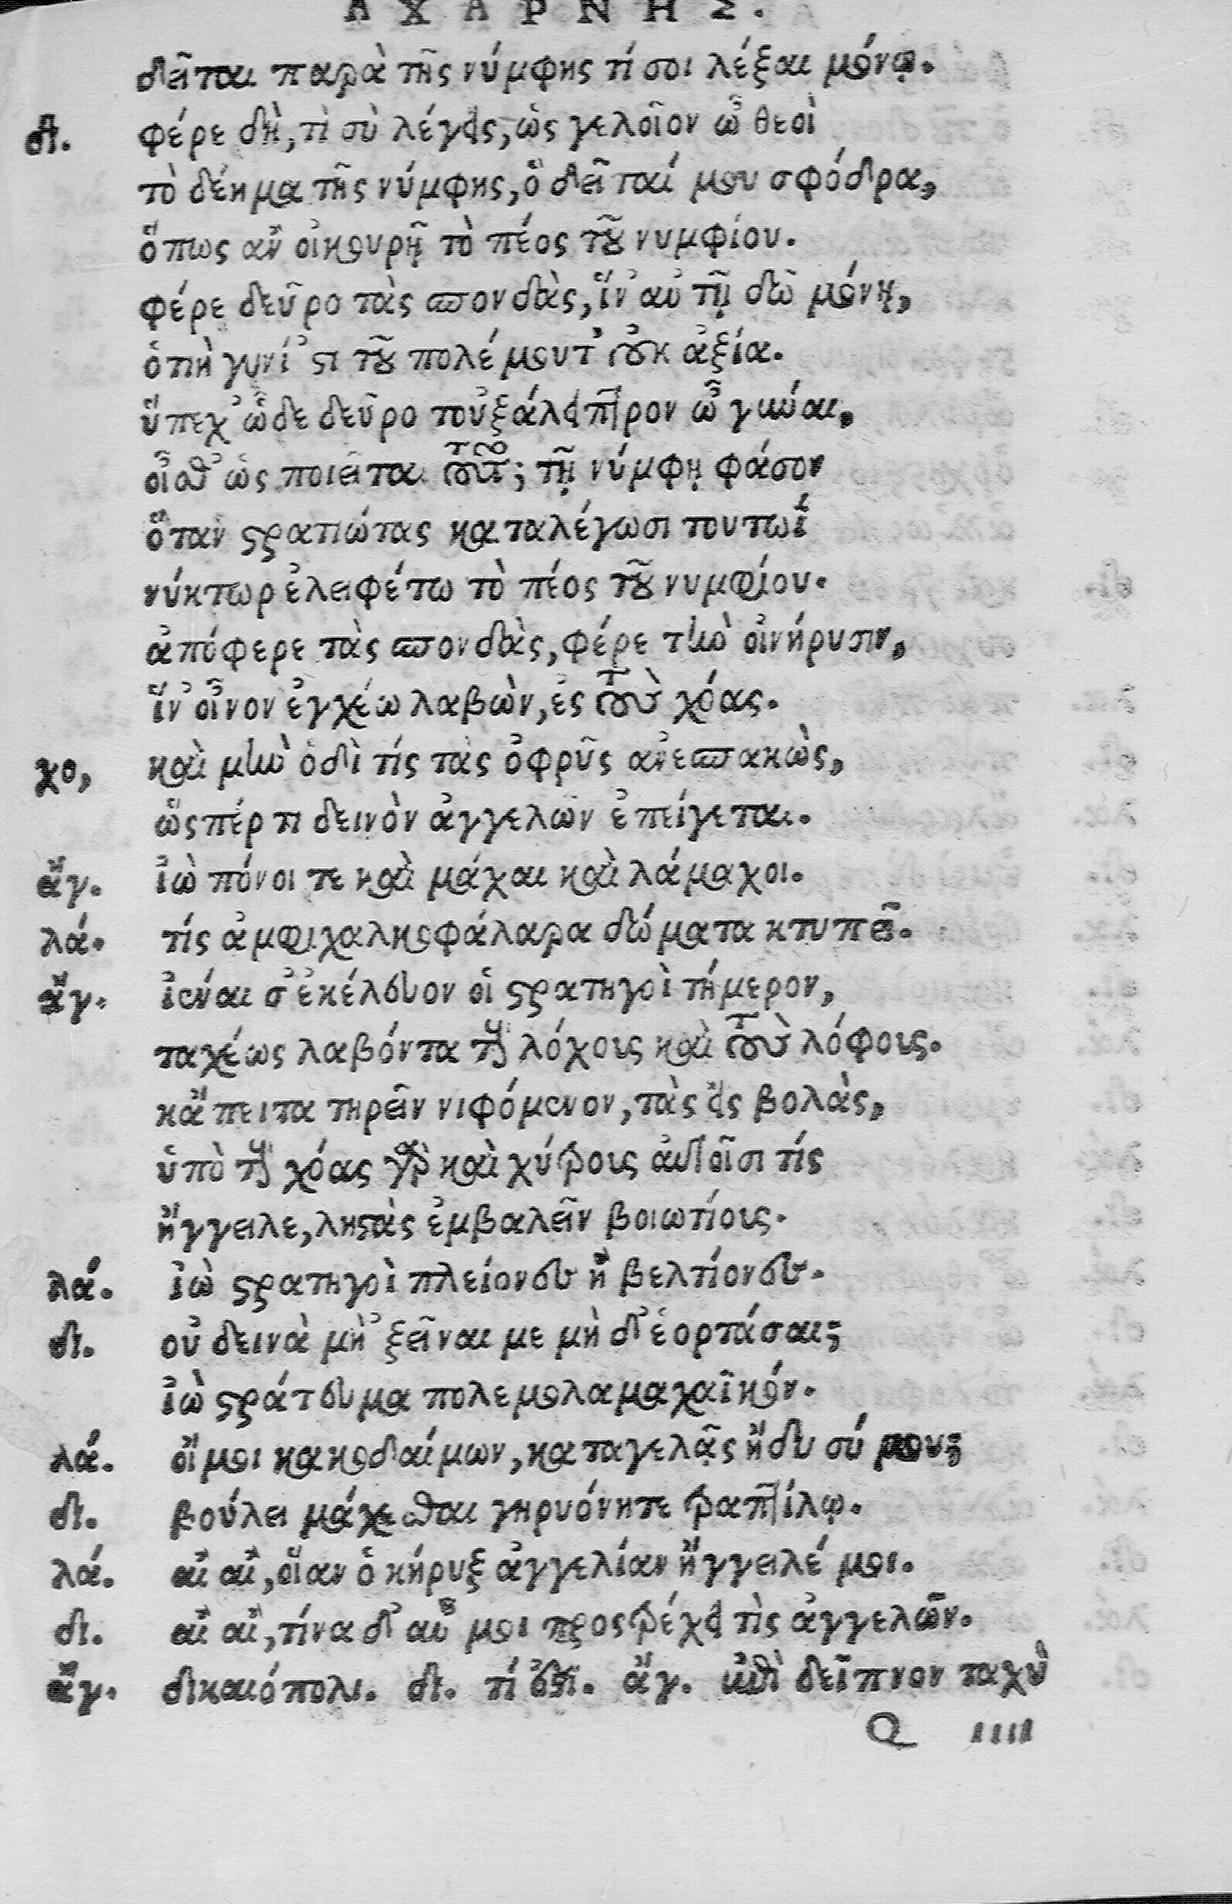 ΑΧΑΡΝΗΣ.
δεῖται παρὰ τῆς νύμφης τί σοι λέξαι μόνῳ.
δι. φέρε δὴ, τὶ σὺ λέγεις, ὡς γελοῖον ὦ θεοὶ
τὸ δέημα τῆς νύμφης, ὃ δεῖταί μου σφόδρα,
ὅπως ἂν οἰκουρῇ τὸ πέος τοῦ νυμφίου.
φέρε δεῦρο τὰς σπονδὰς, ἵν' αὐτῇ δῶ μόνῃ,
ὁτιὴ γυνή 'στι τοῦ πολέμου τ' οὐκ ἀξία.
ὕπεχ' ὧδε δεῦρο τοὐξάλειπτρον ὦ γύναι,
οἶσθ' ὡς ποιεῖται τοῦτο; τῇ νύμφῃ φάσον
ὅταν στρατιώτας καταλέγωσι τουτωῒ
νύκτωρ ἐλειφέτω τὸ πέος τοῦ νυμφίου.
ἀπόφερε τὰς σπονδὰς, φέρε τὴν οἰνήρυσιν,
ἵν' οἶνον ἐγχέω λαβὼν, ἐς τοὺς χόας.
χο, καὶ μὴν ὁδὶ τίς τὰς ὀφρῦς ἀνεσπακὼς,
ὥςπέρ τι δεινὸν ἀγγελῶν ἐπείγεται.
ἄγ. ἰὼ πόνοι τε καὶ μάχαι καὶ λάμαχοι.
λά. τίς ἀμφιχαλκοφάλαρα δώματα κτυπεῖ.
ἄγ. ἰέναι σ' ἐκέλευον οἱ στρατηγοὶ τήμερον,
ταχέως λαβόντα τοὺς λόχους καὶ τοὺς λόφους.
κἄπειτα τηρεῖν νιφόμενον, τὰς εἰς βολὰς,
ὑπὸ τοὺς χόας γὰρ καὶ χύτρους αὐτοῖσι τίς
ἤγγειλε, λῃστὰς ἐμβαλεῖν βοιωτίους.
λά. ἰὼ στρατηγοὶ πλείονες ἢ βελτίονες.
δι. οὐ δεινὰ μὴ 'ξεῖναι με μὴ δ' ἑορτάσαι;
ἰὼ στράτευμα πολεμολαμαχαϊκόν.
λά. οἴμοι κακοδαίμων, καταγελᾷς ἤδη σύ μου;
δι. βούλει μάχεσθαι γηρυόνητε τραπτίλῳ.
λά. αἲ αἲ, οἵαν ὁ κήρυξ ἀγγελίαν ἤγγειλέ μοι.
δι. αἲ αἲ, τίνα δ' αὖ μοι προςτρέχει τὶς ἀγγελῶν.
ἄγ. δικαιόπολι. δι. τί ἐστι. ἄγ. ἐπὶ δεῖπνον ταχὺ
Q iiii